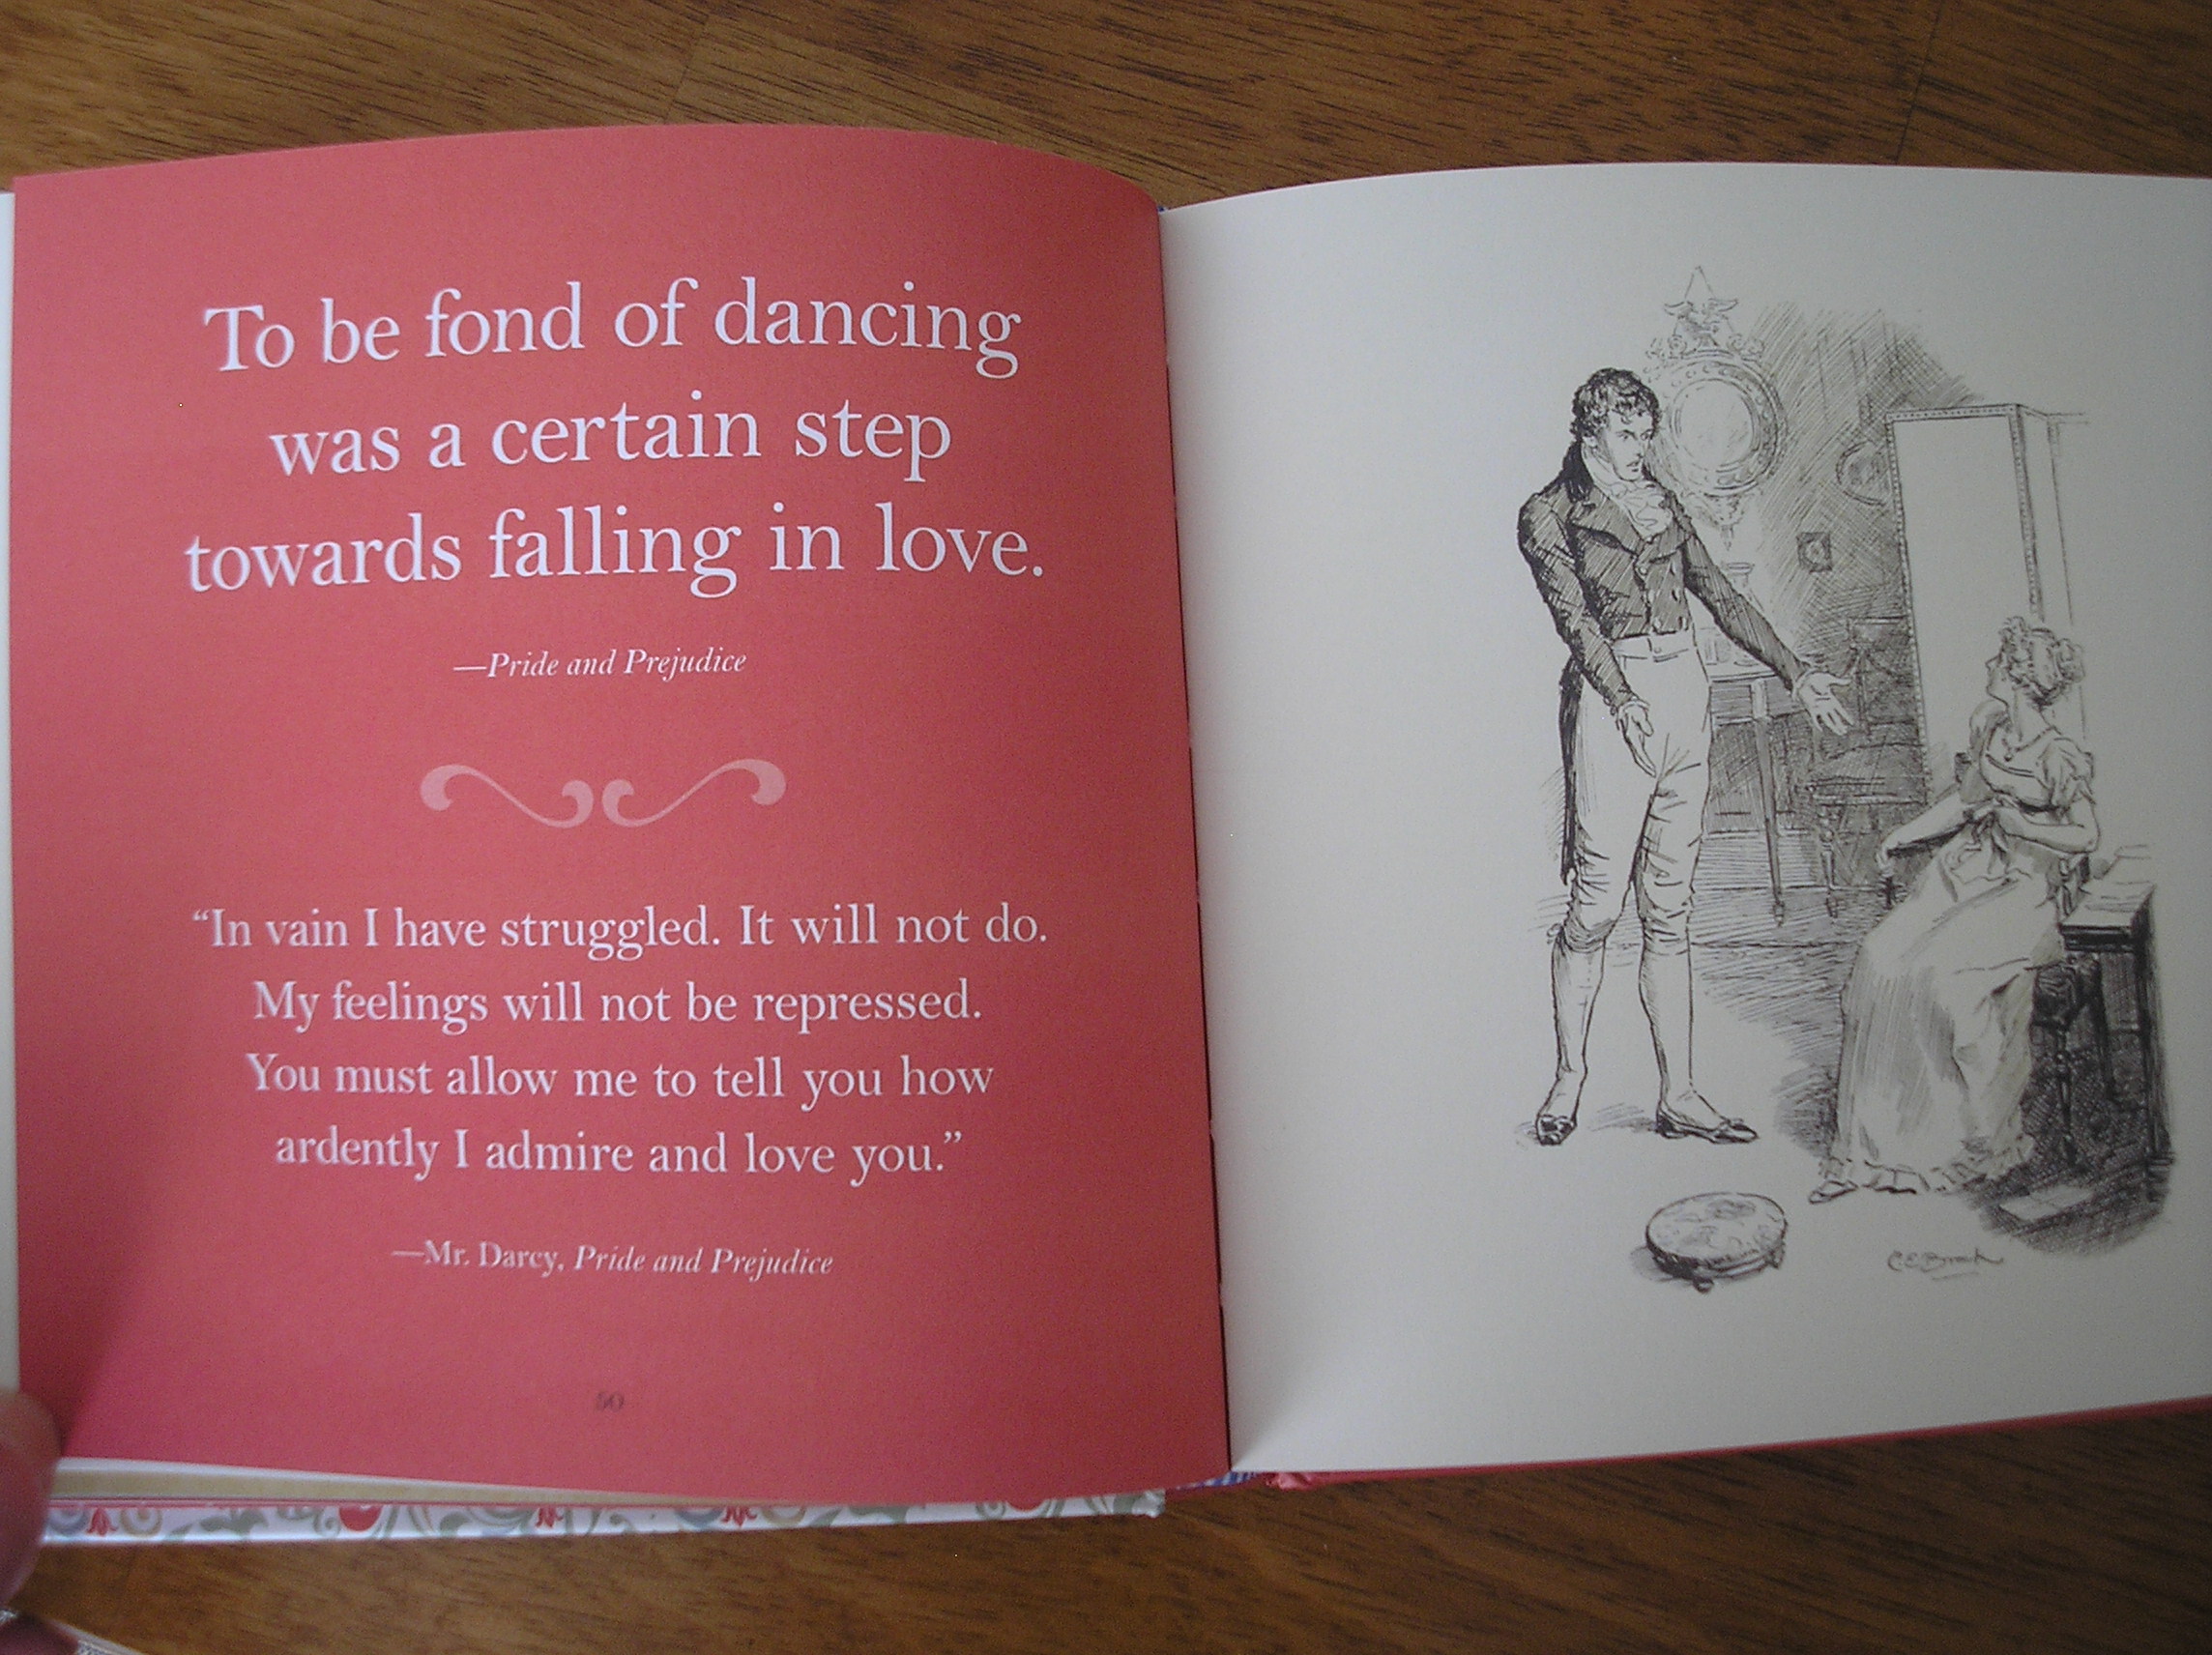 To be fond of dancing
was a certain step
towards falling in love.
—Pride and Prejudice
“In vain I have struggled. It will not do.
My feelings will not be repressed.
You must allow me to tell you how
ardently I admire and love you.”
—Mr. Darcy, Pride and Prejudice
50
C.E. Brock